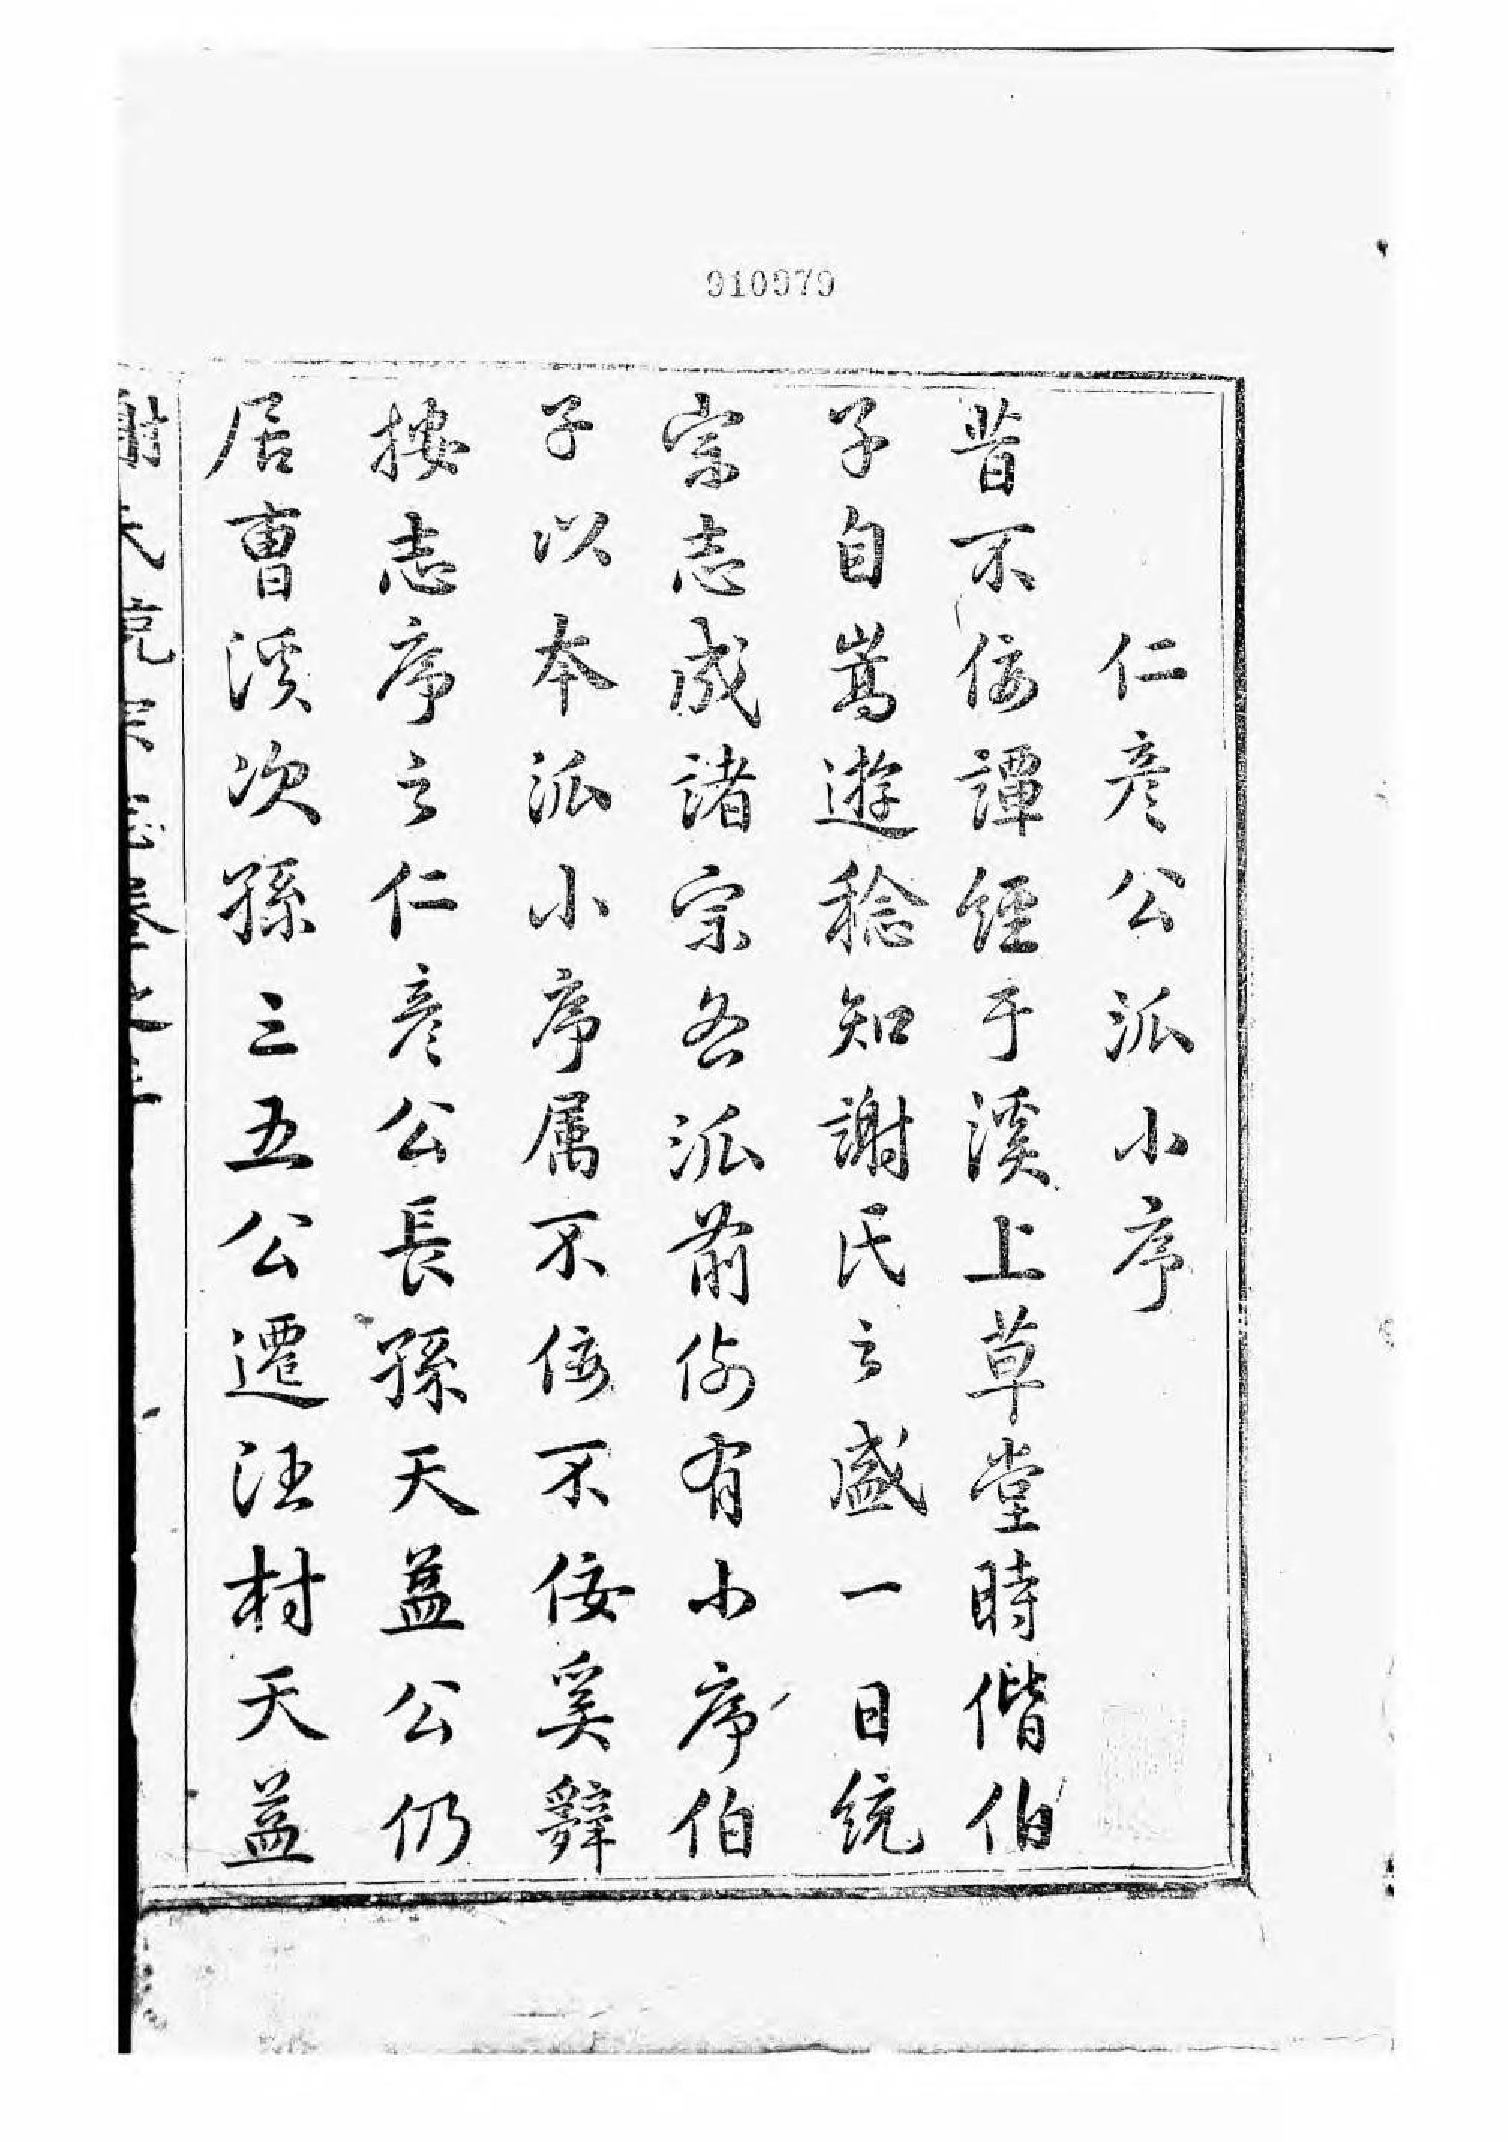 910979
仁彥公泒小序
昔不佞譚經于溪上草堂時偕伯
子自嵩遊稔知謝氏之盛一日統
宗志成諸宗各泒前例有小序伯
子以本泒小序属不佞不佞奚辭
按志序之仁彥公長孫天益公仍
居曹溪次孫三五公遷汪村天益
謝氏統宗志卷之